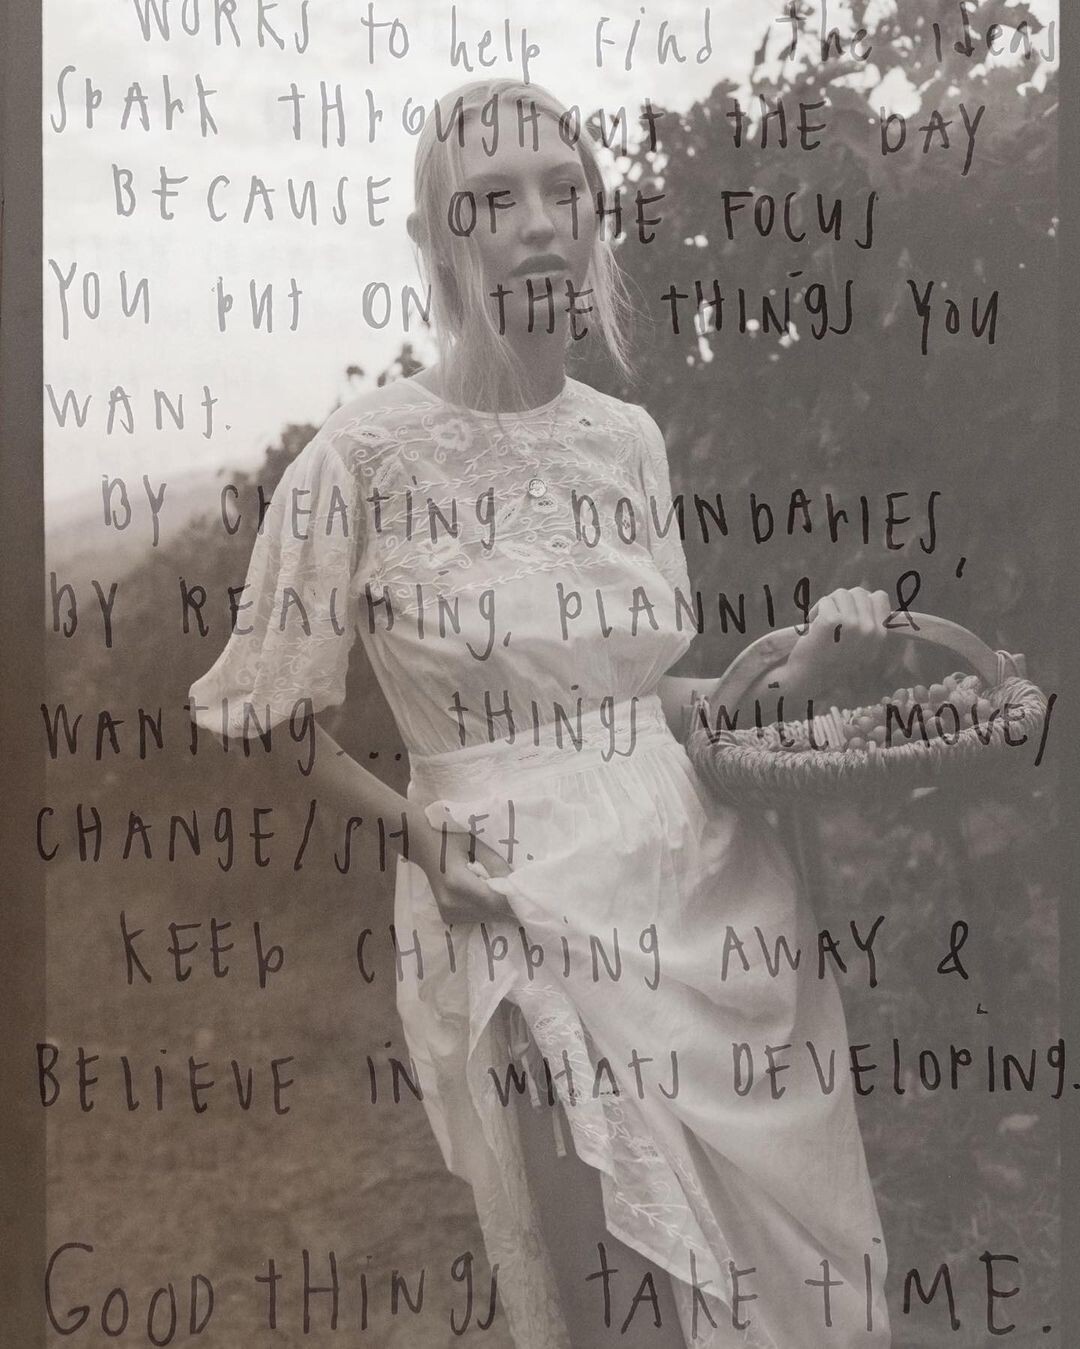 WORKS to help Find The ideas
SPARK tHroughout tHE DAY
BECAUSE OF tHE FOCUS
YOU put ON tHE tHINgS YOU
WANt.
BY CrEAtiNg BOUNDArIES,
BY REACHiNg, PLANNIg, &
WANTING... tHINgS WiLL MOVE/
CHANgE/SHiFt.
KEEp CHippiNg AWAY &
BELiEVE iN WHAtS DEVELOPINg.
GOOD tHiNgS tAKE tiME.